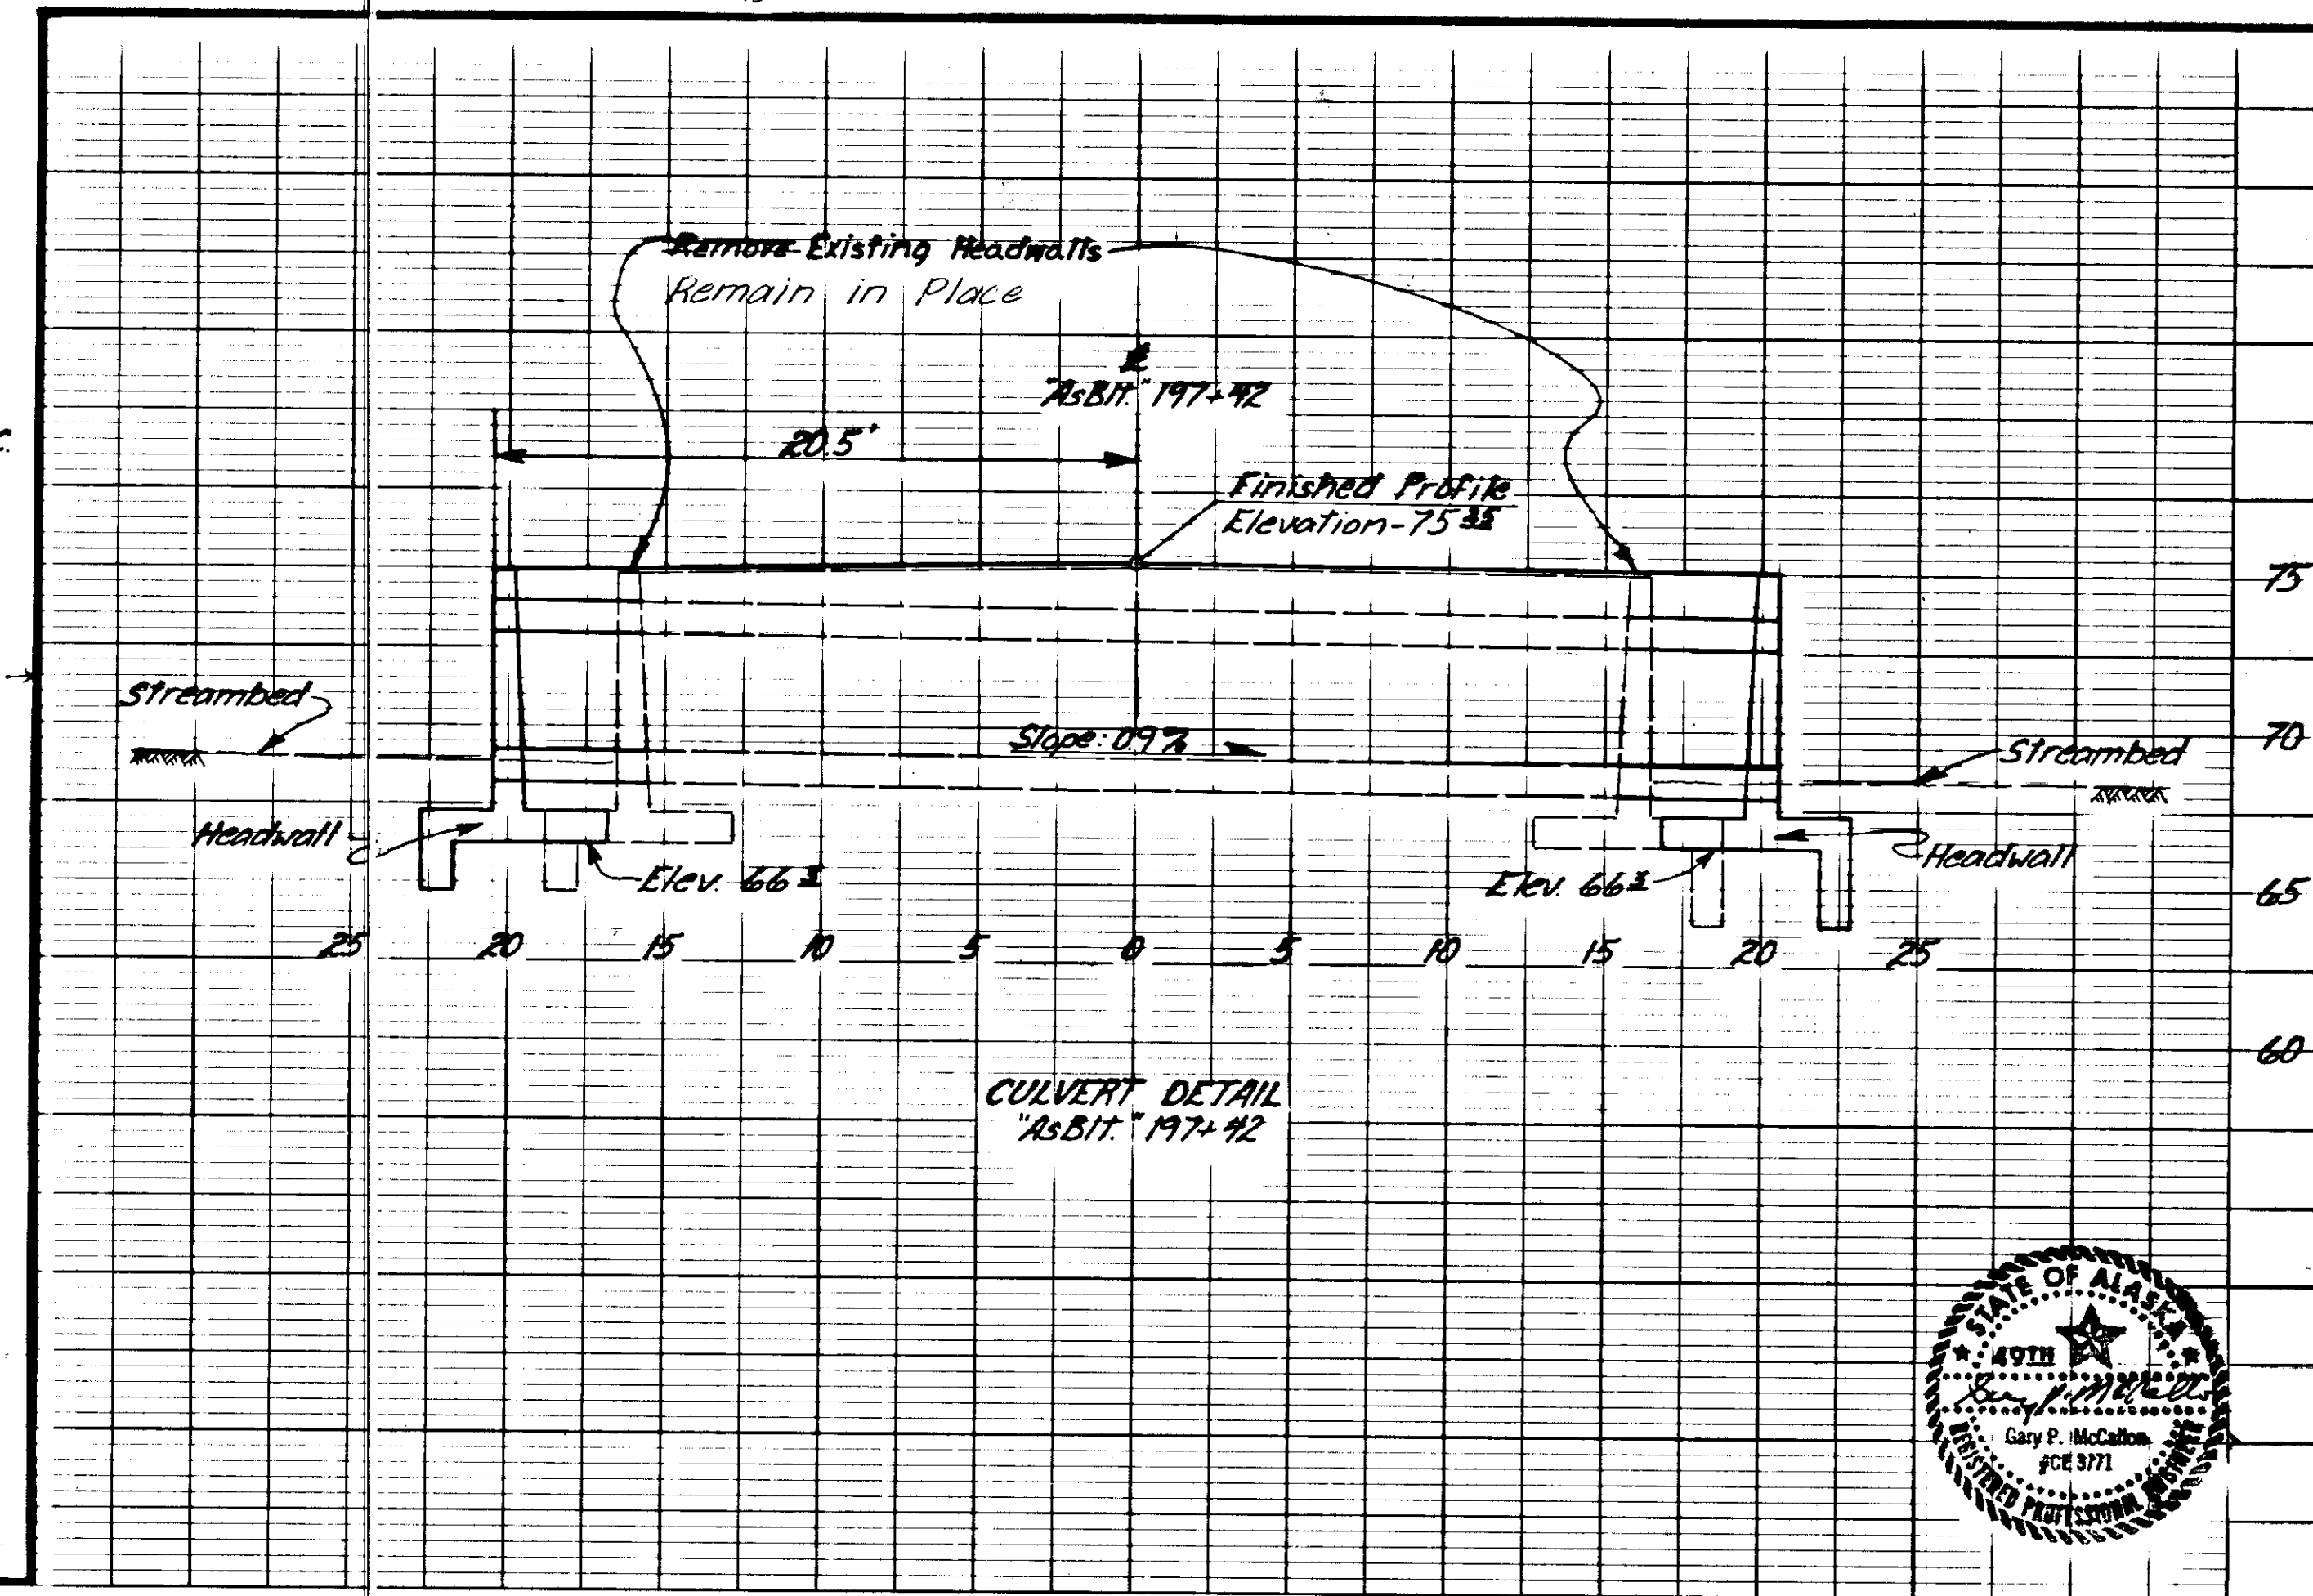 Remove Existing Headwalls
Remain in Place
℄
"AsBlt." 197+42
20.5'
Finished Profile
Elevation-75
75
Streambed
Slope: 0.9%
Streambed
70
Headwall
Elev. 66
Elev. 66
Headwall
65
25 20 15 10 5 0 5 10 15 20 25
60
CULVERT DETAIL
"AsBlt." 197+42
STATE OF ALASKA
49TH
Gary P. McCallon
#CE 3771
REGISTERED PROFESSIONAL ENGINEER